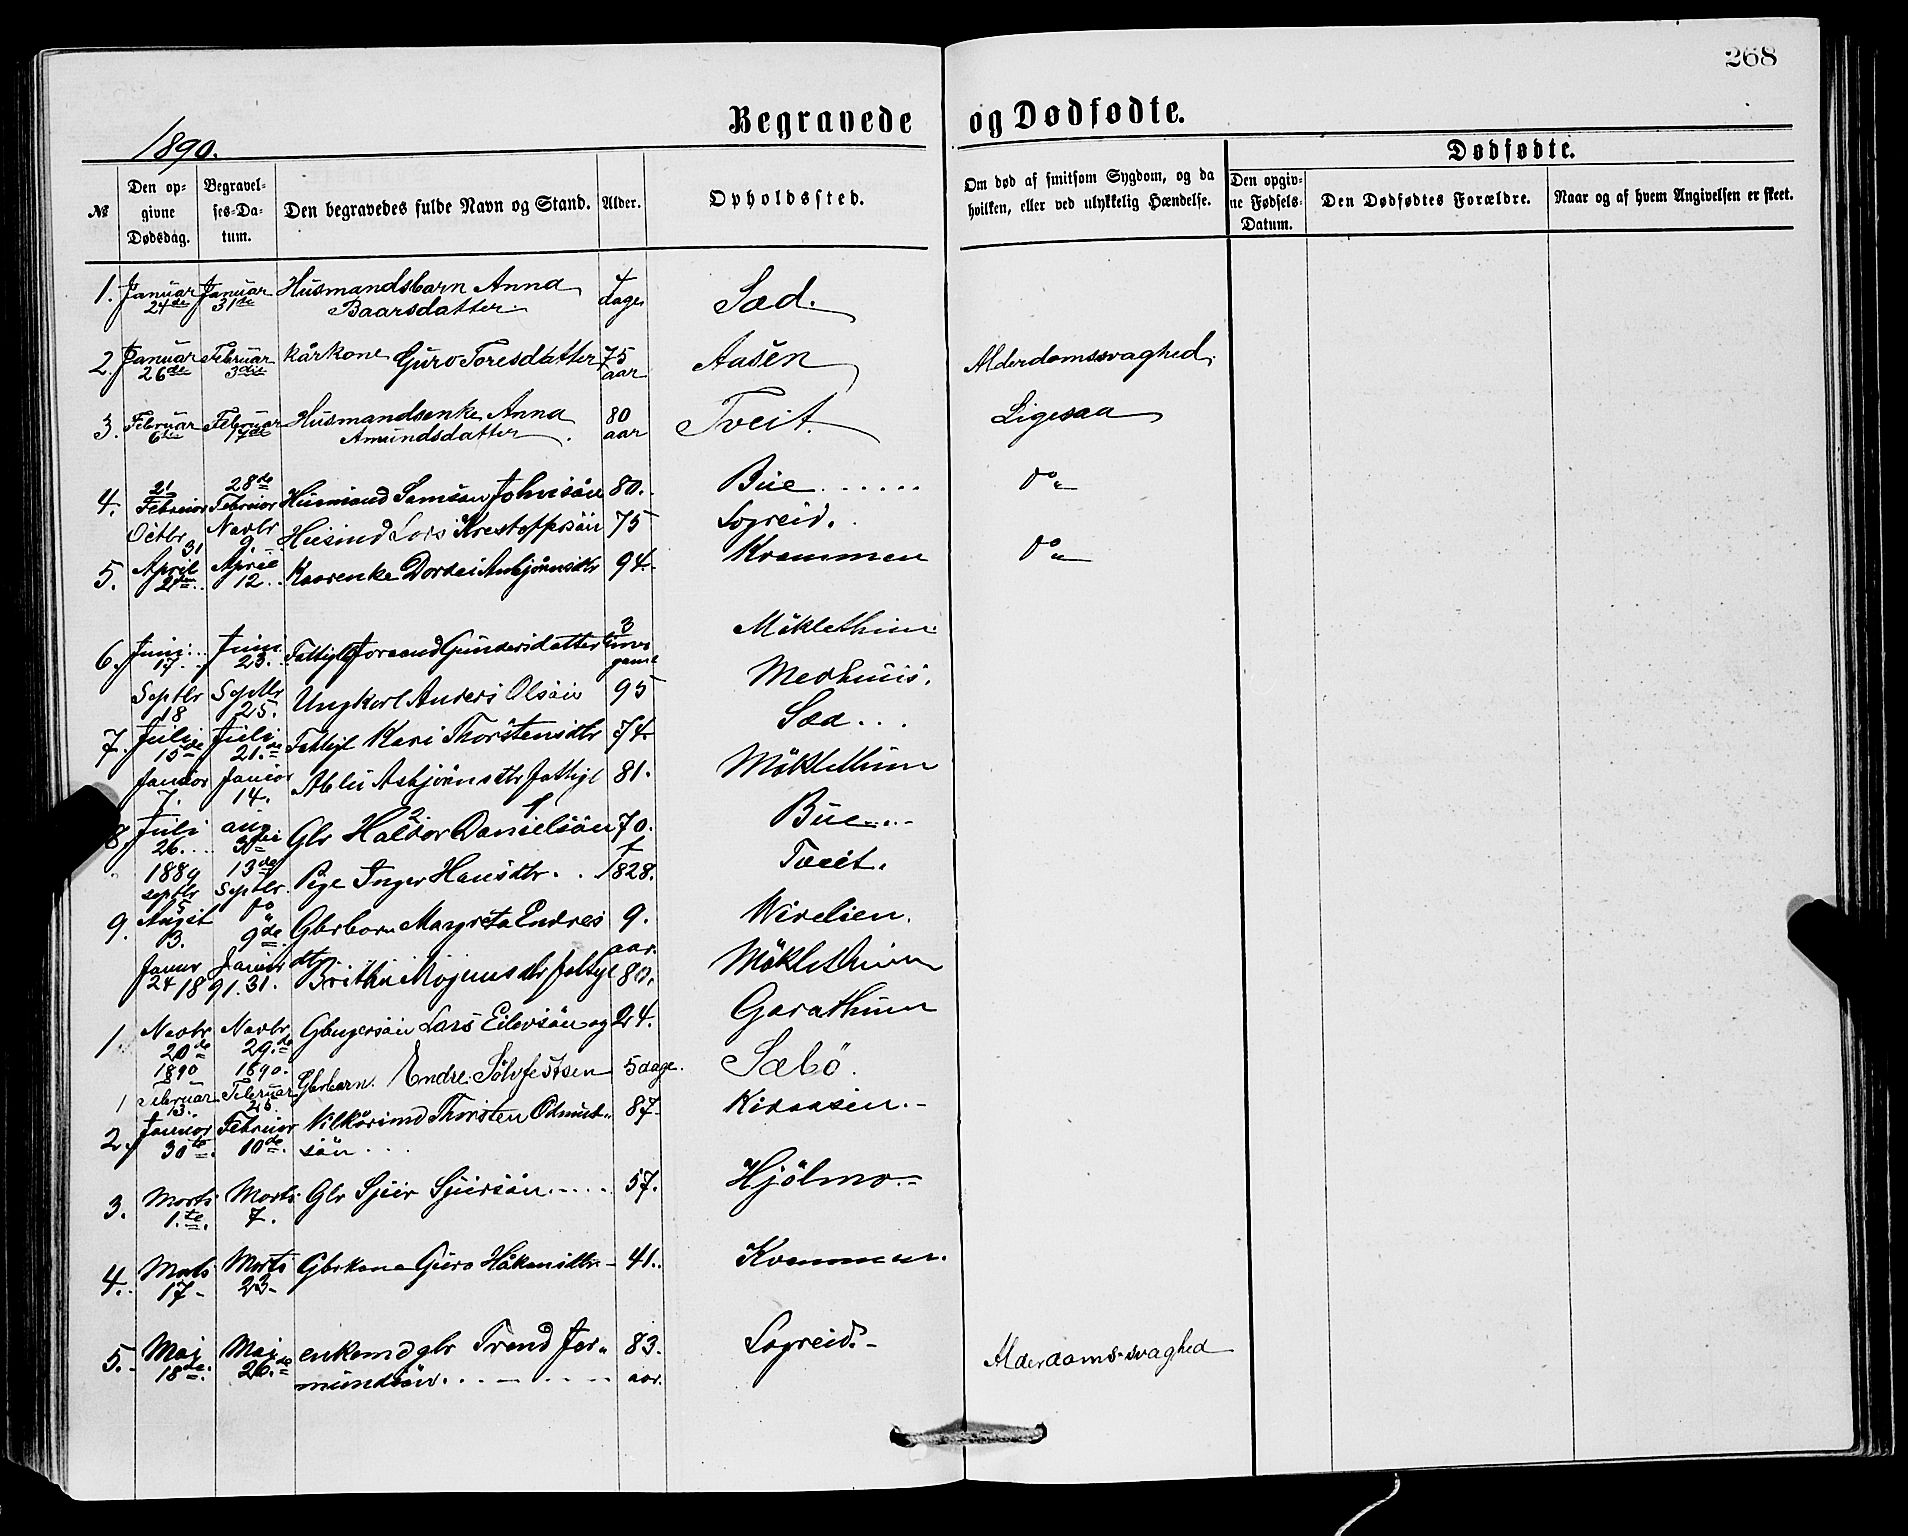 268
Begravede og Dødfødte.
1890.
Dødfødte.
№
Den opgivne Dødsdag.
Begravelses-Datum.
Den begravedes fulde Navn og Stand.
Alder.
Opholdssted.
Om død af smitsom Sygdom, og da hvilken, eller ved ulykkelig Hændelse.
Den opgivne Fødsels-Datum.
Den Dødfødtes Forældre.
Naar og af hvem Angivelsen er skeet.
1. Januar 24de Januar 31de Husmandsbarn Anna Baarsdatter 4 dage Sæd.
2. Januar 26de Februar 3die Kårkone Guro Toresdatter 75 aar Aasen Alderdomssvaghed.
3. Februar 6te Februar 17de Husmandsenke Anna Amundsdatter 80 aar Tveit. Ligesaa
4. 21 Februar 28de Februar Husmand Samson Johnsön 80. Bue do
Octbr 31 Novbr 9. Husmd Lars Krestoffersön 75 Sogreid.
5. April 2den April 12. Kaarenke Dordei Anbjörnsdtr 94. Krammen do
6. Juni 17. Juni 23. Fattigl Joraand Gundersdatter 3 Möklethun
Septbr 18 Septbr 25. Ungkarl Anders Olsön 95 Medhuus.
7. Juli 15de Juli 21.de Fattigl Kari Thorstensdtr 74 Sæd...
Januar 7. Januar 14. Ablu Asbjörnsdtr fattigl 81. Möklethun
8. Juli 26. aug 3die Gbr Haldor Danielsön 70. Bue
1889 septbr 5 13de Septbr Pige Inger Hansdtr. 1828. Tveit.
9. August 3. do 9de Gbrbarn Margreta Endresdtr 9. aar. Wirelien.
Januar 24 1891. Januar 31. Britha Mogunsdtr fattigl 80. Möklethun
1. Novbr 20de 1890 Novbr 29.de 1890. Gbrgersön Lars Eilevsön 24. Garathun
1 Februar 13. Februar 25. Gbrbarn. Endre Sölvfestsen 5 dage. Sæbö.
2. Januar 30te. Februar 10de. Vilkårsmd Thorsten Odmundsön 87. Kiraasen.
3. Marts 1.te. Marts 7. Gbr Sjur Sjursön 57. Hjölmo
4. Marts 17 Marts 23 Gbrkona Guro Håkensdtr. 41. Krammen.
5. Mai 18de. Mai 26.de enkemd gbr Trond Jermundsön. 83. aar. Sogreid. Alderdoms-svaghed